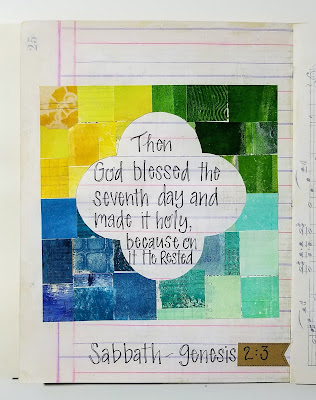 25
Then
God blessed the
seventh day and
made it holy,
because on
it He Rested
Sabbath - Genesis 2:3